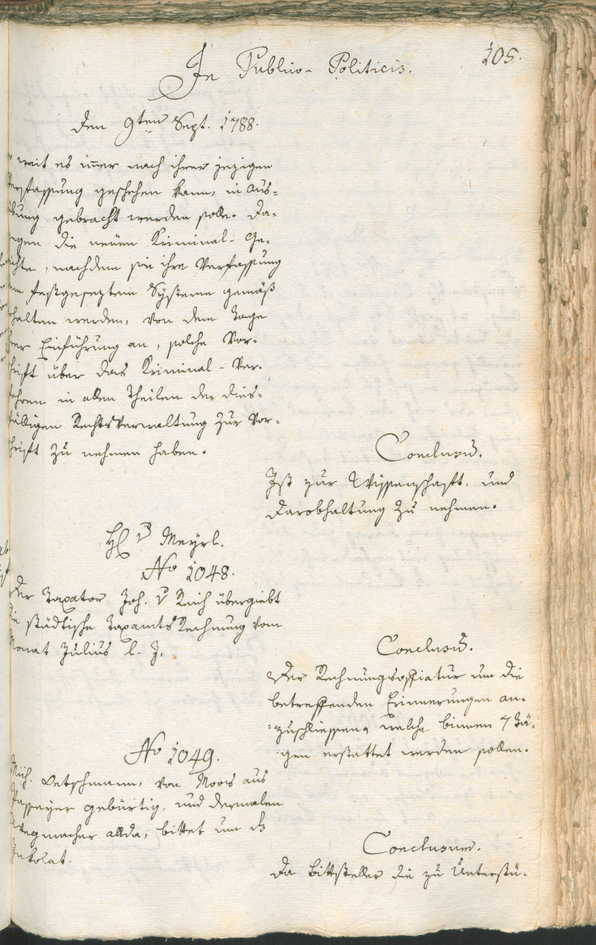 105.
In Publico-Politicis.
Den 9ten Sept. 1788.
weit es imer nach ihrer jezigen
Verfassung geschehen kann, in Aus-
übung gebracht werden solle. Da-
gegen die neuen Kriminal-Ge-
richte, nachdem sie ihre Verfassung
dem festgesezten Systeme gemäß
erhalten werden, von dem Tage
ihrer Einführung an, solche Vor-
schrift über das Kriminal-Ver-
fahren in allen Theilen der dies-
fälligen Rechtsverwaltung zur Vor-
schrift zu nehmen haben.
Conclusum.
Ist zur Wissenschaft, und
Darobhaltung zu nehmen.
H v Meyrl.
No 1048.
Der Taxator Joh. v Reich übergiebt
die städtische Taxamts Rechnung vom
Monat Julius l. J.
Conclusum.
Der Rechnungsoffiziatur um die
betreffenden Erinnerungen an-
zuschliessen, welche binnen 7 Tä-
gen erstattet werden sollen.
No 1049.
Mich. Oetschmann, von Moos aus
Passeyer gebürtig, und dermalen
allda, bittet um ds
Inkolat.
Conclusum.
Da Bittsteller die zu Unterstü-